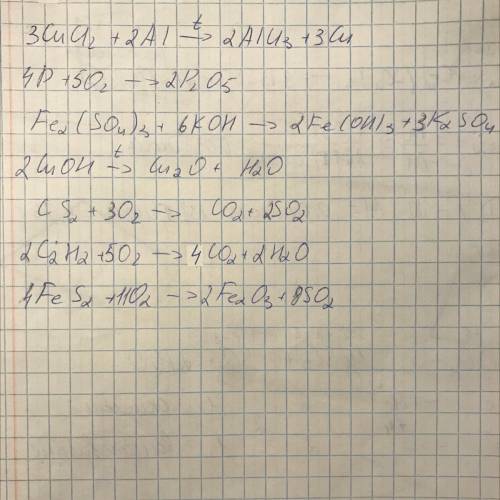 3CuCl₂ + 2Al →ᵗ 2AlCl₃ + 3Cu
4P + 5O₂ → 2P₂O₅
Fe₂(SO₄)₃ + 6KOH → 2Fe(OH)₃ + 3K₂SO₄
2CuOH →ᵗ Cu₂O + H₂O
CS₂ + 3O₂ → CO₂ + 2SO₂
2C₂H₂ + 5O₂ → 4CO₂ + 2H₂O
4FeS₂ + 11O₂ → 2Fe₂O₃ + 8SO₂